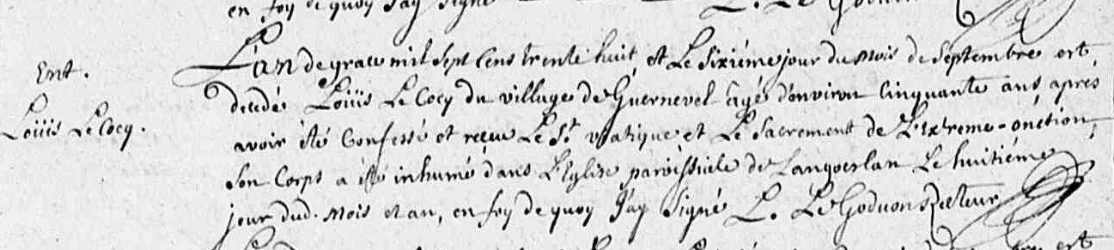 en foy de quoy J'ay Signé L. Le Goduon
L'an de grace mil Sept Cens trente huit, et Le Sixiéme jour du Mois de Septembre est
Ent.
decedé Loüis Le Cocq du village de Guernevel âgé d'environ Cinquante ans, aprés
Loüis Le Cocq.
avoir été Confessé et reçeu Le St. viatique et Le Sacrement de L'extreme-onction,
Son Corps a été inhumé dans L'Eglise paroissiale de Langoerlan Le huitiéme
jour dud. Mois et an, en foy de quoy J'ay Signé L. Le Goduon Recteur